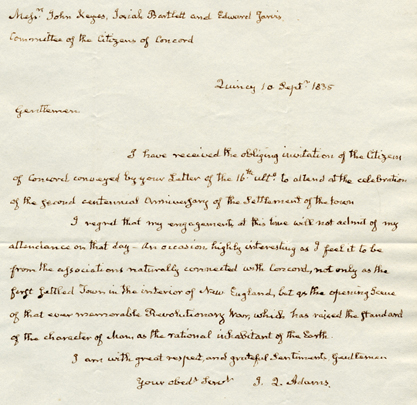 Mess.rs John Keyes, Josiah Bartlett and Edward Jarvis,
Committee of the Citizens of Concord
Quincy 10 Septr. 1835
Gentlemen.
I have received the obliging invitation of the Citizens
of Concord conveyed by your Letter of the 16th. ulto. to attend at the celebration
of the second centennial Anniversary of the Settlement of the town
I regret that my engagements at this time will not admit of my
attendance on that day - An occasion, highly interesting as I feel it to be
from the associations naturally connected with Concord, not only as the
first settled Town in the interior of New England, but as the opening Scene
of that ever memorable Revolutionary War, which has raised the standard
of the character of Man, as the rational inhabitant of the Earth.
I am with great respect, and grateful Sentiments, Gentlemen
Your obedt. Servt. J. Q. Adams.